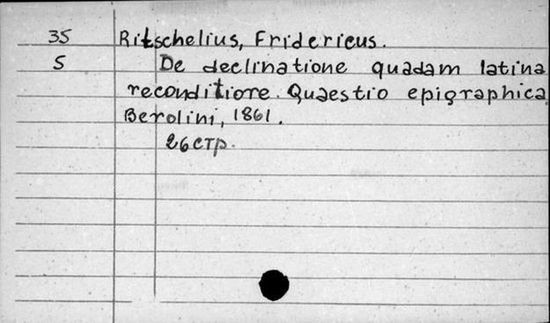 35 Ritschelius, Fridericus.
5 De declinatione quadam latina
reconditiore. Quaestio epigraphica
Berolini, 1861.
26 стр.